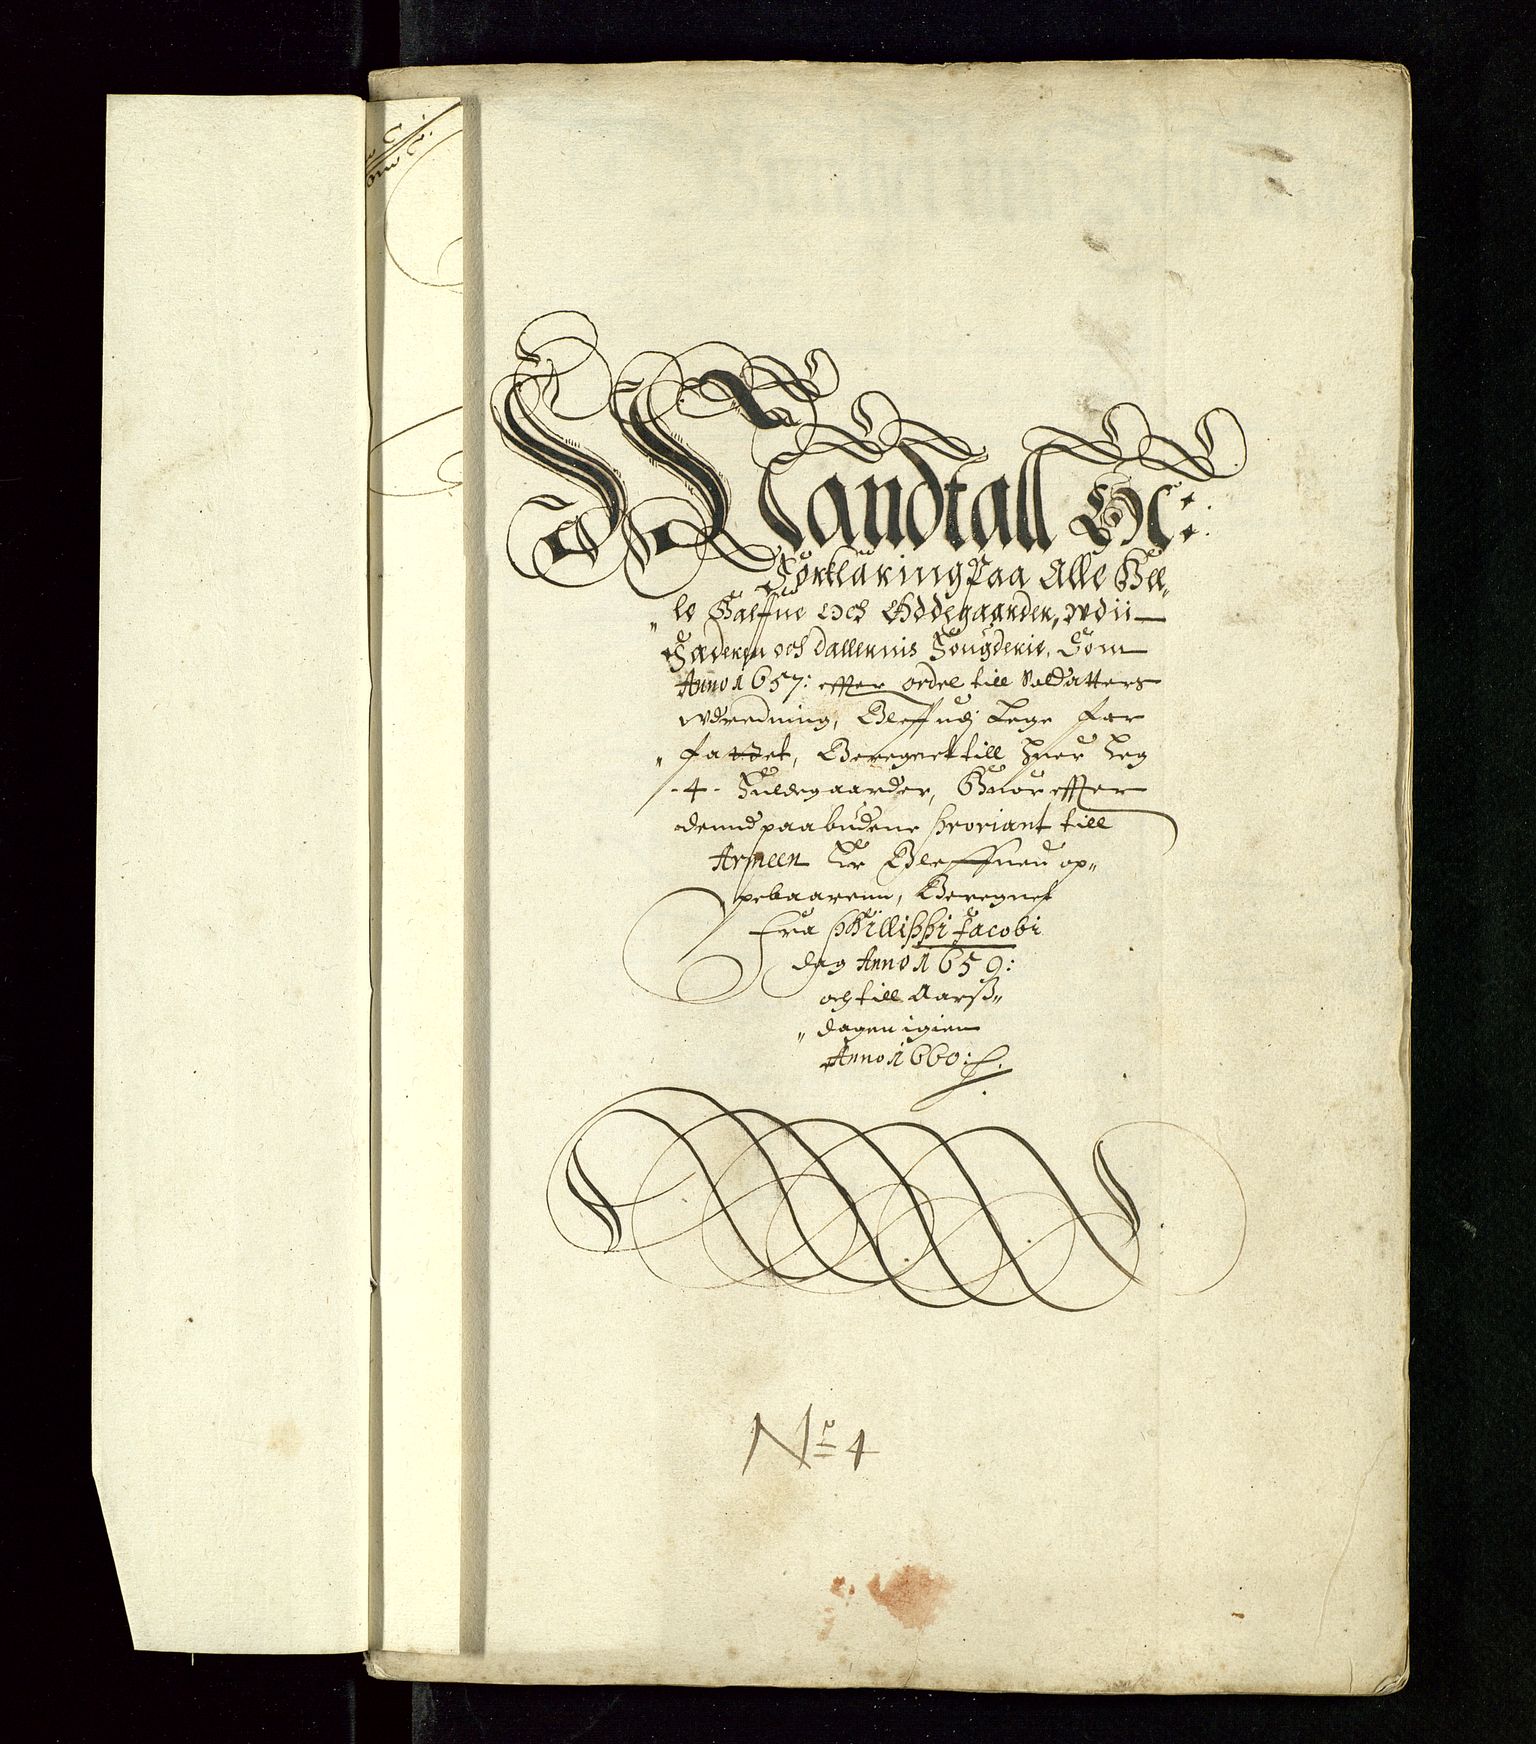 Mandtall Och
Forklaring Paa Alle Hel„
„le Halffue Och Øddegaarder, vdii
Jæderen och Dallernis Fougderie, Som
Anno 1657: effter ordel till Soldatters
vdredning, Bleff udj Lege for
„fattet, Beregnet till huer Leg
-4- Fuldegaarder, Huor effter
dend paabudene proviant till
Armeen Er Bleffuen op„
pebaarenn, Beregnet
Fra Phillippi Jacobi
dag Anno 1659:
och till Aarß„
„dagen igien
Anno 1660:
Nr 4